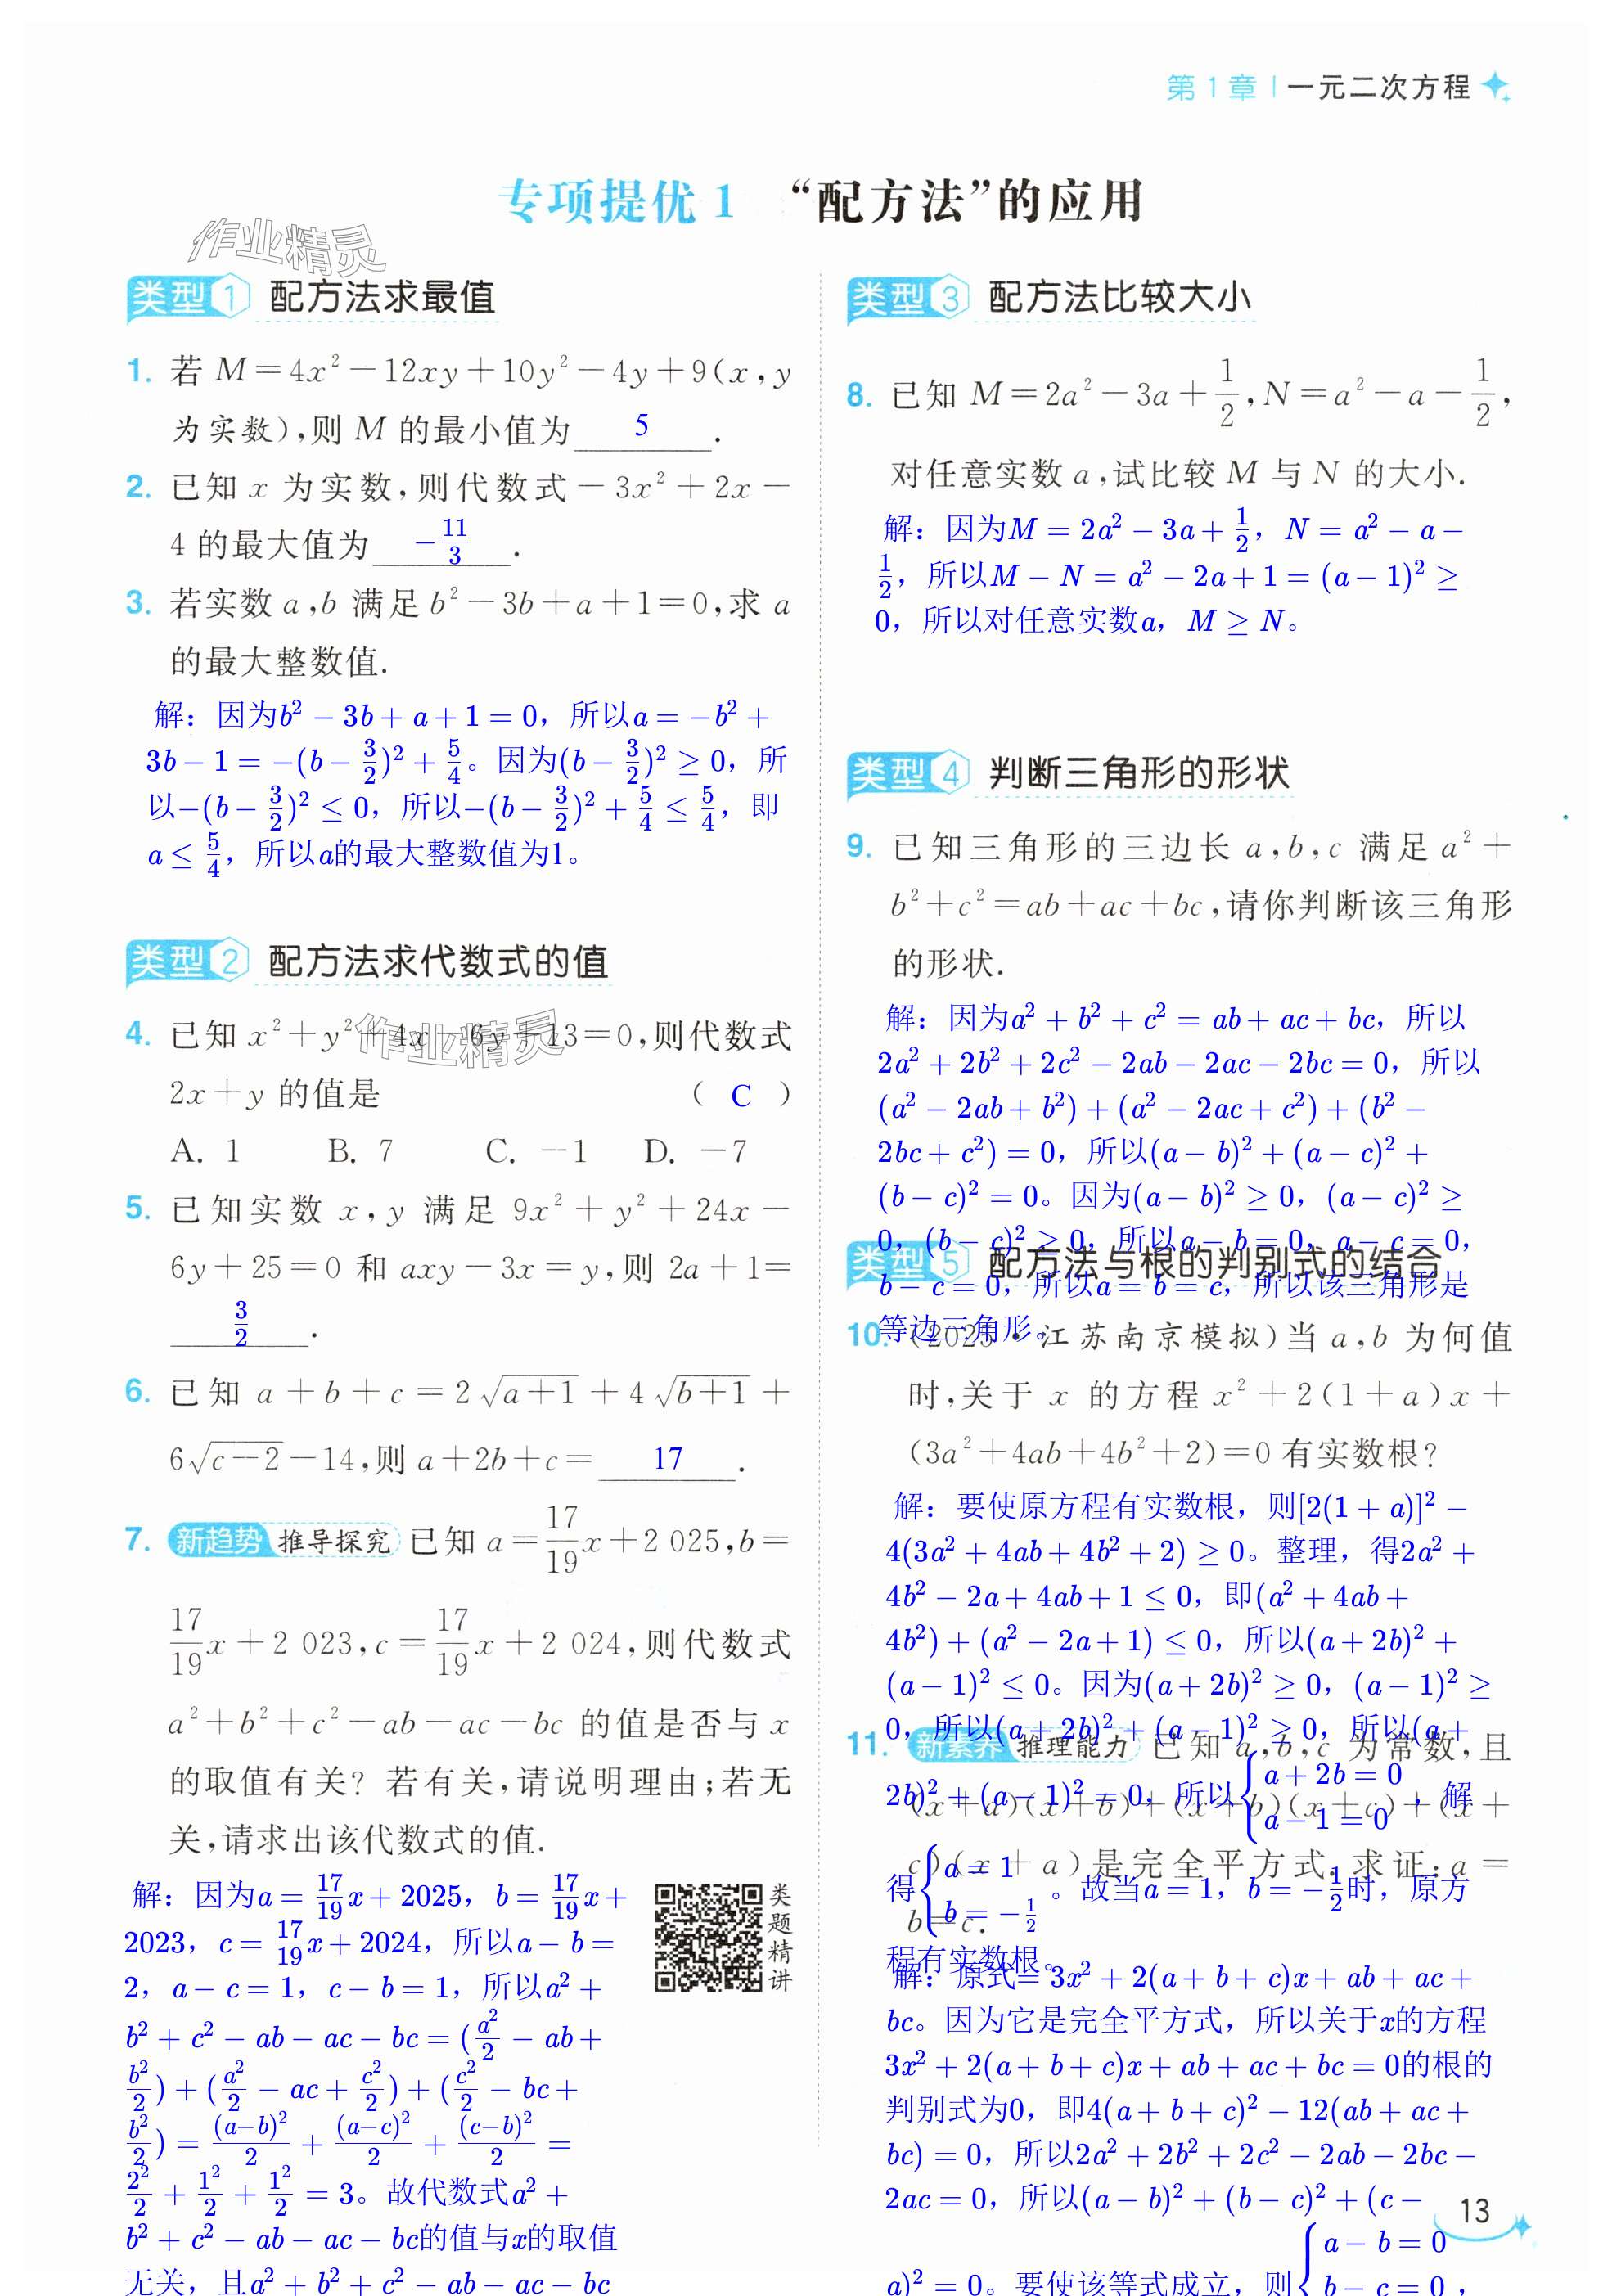 第1章 | 一元二次方程
专项提优1 “配方法”的应用
作业精灵
类型1 配方法求最值
1. 若 M=4x²-12xy+10y²-4y+9(x,y
为实数),则 M 的最小值为 5 .
2. 已知 x 为实数,则代数式-3x²+2x-
4 的最大值为 -11/3 .
3. 若实数 a,b 满足 b²-3b+a+1=0,求 a
的最大整数值.
解：因为b²-3b+a+1=0，所以a=-b²+
3b-1=-(b-3/2)²+5/4。因为(b-3/2)²≥0，所
以-(b-3/2)²≤0，所以-(b-3/2)²+5/4≤5/4，即
a≤5/4，所以a的最大整数值为1。
类型2 配方法求代数式的值
4. 已知 x²+y²+4x-6y+13=0,则代数式
作业精灵
2x+y 的值是 ( C )
A. 1 B. 7 C. -1 D. -7
5. 已知实数 x,y 满足 9x²+y²+24x-
6y+25=0 和 axy-3x=y,则 2a+1=
3/2 .
6. 已知 a+b+c=2√(a+1)+4√(b+1)+
6√(c-2)-14,则 a+2b+c= 17 .
7. 新趋势 推导探究 已知 a=17/19x+2 025,b=
17/19x+2 023,c=17/19x+2 024,则代数式
a²+b²+c²-ab-ac-bc 的值是否与 x
的取值有关? 若有关,请说明理由;若无
关,请求出该代数式的值.
解：因为a=17/19x+2025，b=17/19x+
2023，c=17/19x+2024，所以a-b=
2，a-c=1，c-b=1，所以a²+
b²+c²-ab-ac-bc=(a²/2-ab+
b²/2)+(a²/2-ac+c²/2)+(c²/2-bc+
b²/2)=(a-b)²/2+(a-c)²/2+(c-b)²/2=
2²/2+1²/2+1²/2=3。故代数式a²+
b²+c²-ab-ac-bc的值与x的取值
无关，且a²+b²+c²-ab-ac-bc
类题精讲
类型3 配方法比较大小
8. 已知 M=2a²-3a+1/2,N=a²-a-1/2,
对任意实数 a,试比较 M 与 N 的大小.
解：因为M=2a²-3a+1/2，N=a²-a-
1/2，所以M-N=a²-2a+1=(a-1)²≥
0，所以对任意实数a，M≥N。
类型4 判断三角形的形状
9. 已知三角形的三边长 a,b,c 满足 a²+
b²+c²=ab+ac+bc,请你判断该三角形
的形状.
解：因为a²+b²+c²=ab+ac+bc，所以
2a²+2b²+2c²-2ab-2ac-2bc=0，所以
(a²-2ab+b²)+(a²-2ac+c²)+(b²-
2bc+c²)=0，所以(a-b)²+(a-c)²+
(b-c)²=0。因为(a-b)²≥0，(a-c)²≥
0，(b-c)²≥0，所以a-b=0，a-c=0，
b-c=0，所以a=b=c，所以该三角形是
等边三角形。
类型5 配方法与根的判别式的结合
10. (2025·江苏南京模拟)当 a,b 为何值
时,关于 x 的方程 x²+2(1+a)x+
(3a²+4ab+4b²+2)=0 有实数根?
解：要使原方程有实数根，则[2(1+a)]²-
4(3a²+4ab+4b²+2)≥0。整理，得2a²+
4b²-2a+4ab+1≤0，即(a²+4ab+
4b²)+(a²-2a+1)≤0，所以(a+2b)²+
(a-1)²≤0。因为(a+2b)²≥0，(a-1)²≥
0，所以(a+2b)²+(a-1)²≥0，所以(a+
2b)²+(a-1)²=0，所以{a+2b=0 a-1=0，解
得{a=1 b=-1/2。故当a=1，b=-1/2时，原方
程有实数根。
11. 新素养 推理能力 已知 a,b,c 为常数,且
(x+a)(x+b)+(x+b)(x+c)+(x+
c)(x+a)是完全平方式. 求证:a=
b=c.
解：原式=3x²+2(a+b+c)x+ab+ac+
bc。因为它是完全平方式，所以关于x的方程
3x²+2(a+b+c)x+ab+ac+bc=0的根的
判别式为0，即4(a+b+c)²-12(ab+ac+
bc)=0，所以2a²+2b²+2c²-2ab-2bc-
2ac=0，所以(a-b)²+(b-c)²+(c-
a)²=0。要使该等式成立，则{a-b=0 b-c=0，
13